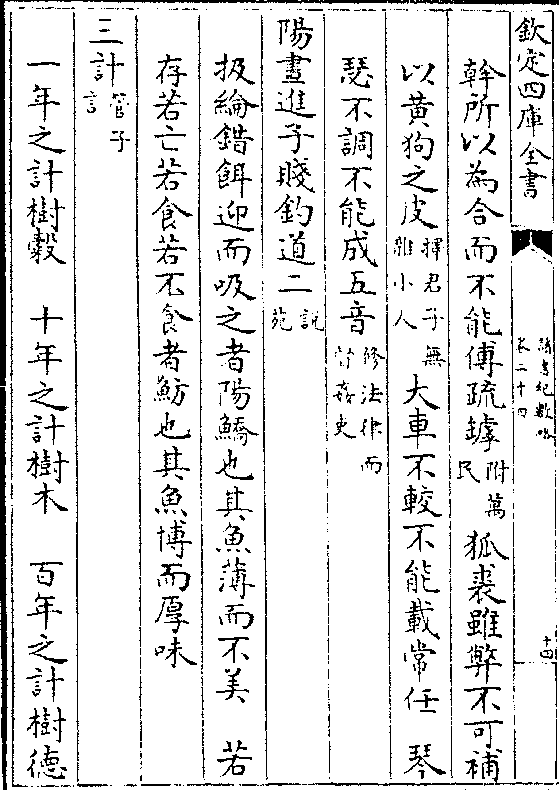 欽定四庫全書
幹所以為合而不能傅疏罅附萬民　狐裘雖弊不可補
以黄狗之皮擇君子無雜小人　大車不較不能載常任　琴
瑟不調不能成五音修法律而督姦吏
陽晝進子賤釣道二說苑
扱綸錯餌迎而吸之者陽鱎也其魚薄而不美　若
存若亡若食若不食者魴也其魚博而厚味
三計管子言
一年之計樹穀　十年之計樹木　百年之計樹德
卷二十四
十四